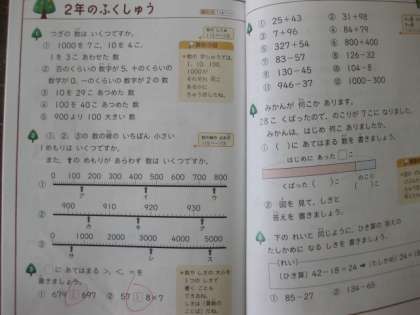 2年のふくしゅう
つぎの 数は いくつですか。
① 1000を 7こ、10を 4こ、
1を 3こ あわせた 数
② 百のくらいの 数字が 5、十のくらいの
数字が 0、一のくらいの 数字が 2の 数
③ 10を 29こ あつめた 数
④ 100を 40こ あつめた 数
⑤ 900より 100 大きい 数
①、②、③の 数の線の いちばん 小さい
1めもりは いくつですか。
また、↑の めもりが あらわす 数は いくつですか。
① 0 100 200 300 400 500 600 700 800
ア イ ウ
② 900 910 920 930
③ 0 1000 2000 3000 4000 5000
に あてはまる >、<、=を
書きましょう。
① 679 697 ② 57 8×7
① 25+43 ② 31+98
③ 7+96 ④ 84+79
⑤ 327+54 ⑥ 800+400
⑦ 83-57 ⑧ 126-32
⑨ 130-45 ⑩ 104-8
⑪ 946-37 ⑫ 1000-300
みかんが 何こか あります。
28こ くばったので、のこりが 72こに なりました。
みかんは、はじめ 何こ ありましたか。
① ( )に あてはまる 数を 書きましょう。
はじめに あった □こ
くばった ( )こ のこ
② 図を 見て、しきと
答えを 書きましょう。
下の れいと 同じように、ひき算の 答えの
たしかめに なる しきを 書きましょう。
(れい)
(ひき算) 42-18=24 ➡ (たしかめ) 24+18
① 85-27 ② 134-65